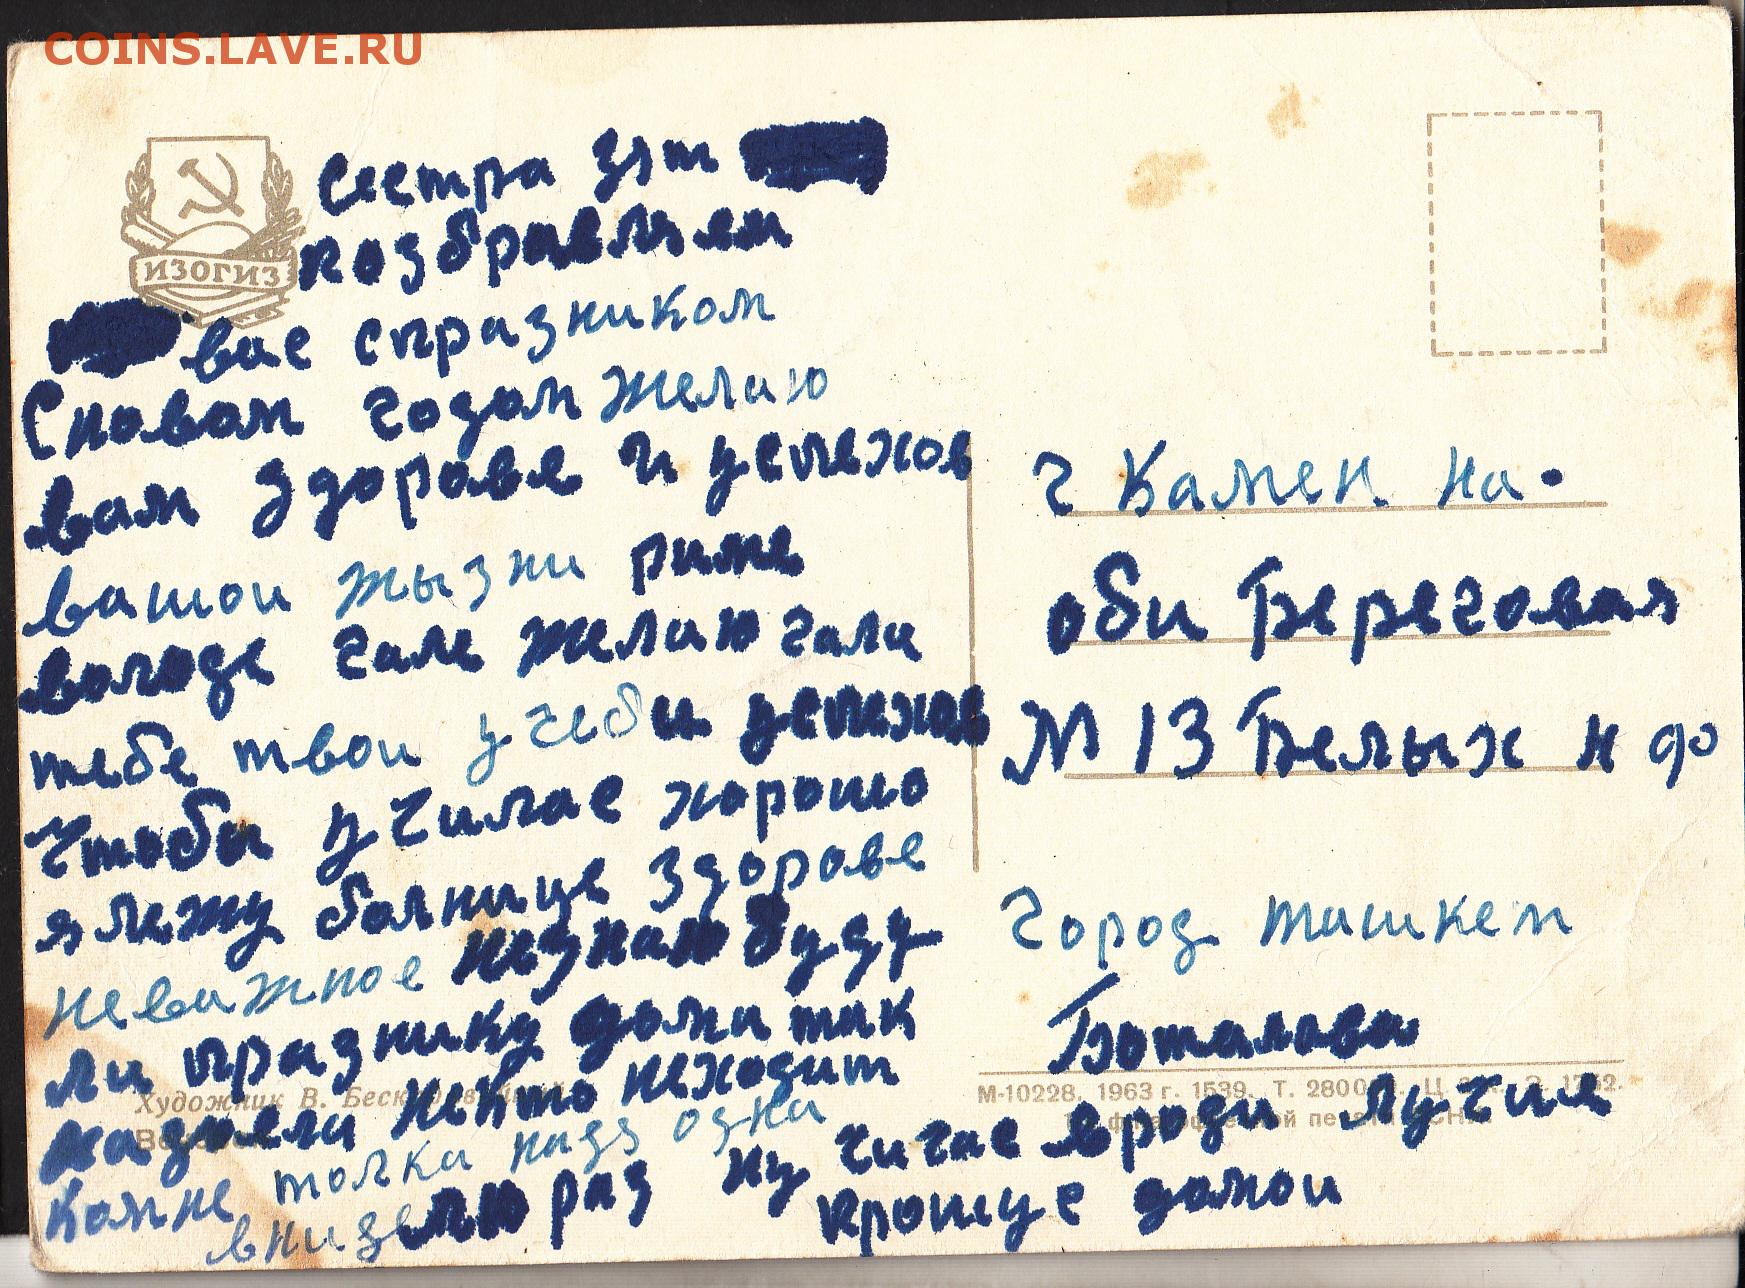 COINS.LAVE.RU
ИЗОГИЗ
Сестра зят
поздравляем
вас спразником
Сновам годом желаю
вам здорове и успехов
вашои жызни риме
володе гале желаю гали
тебе твои учеби успехов
чтоби училас хорошо
я лежу болнице здорове
неважное незнаю буду
ли празнику дома так
надоели никто неходит
комне толка надя одна
внизелю раз ну чичас вроди лучие
кроище домои
г Камен на.
оби Береговая
№ 13 Белых н ф
город ташкен
Боталова
Художник В.
М-10228. 1963 г. 1539. Т. 2800